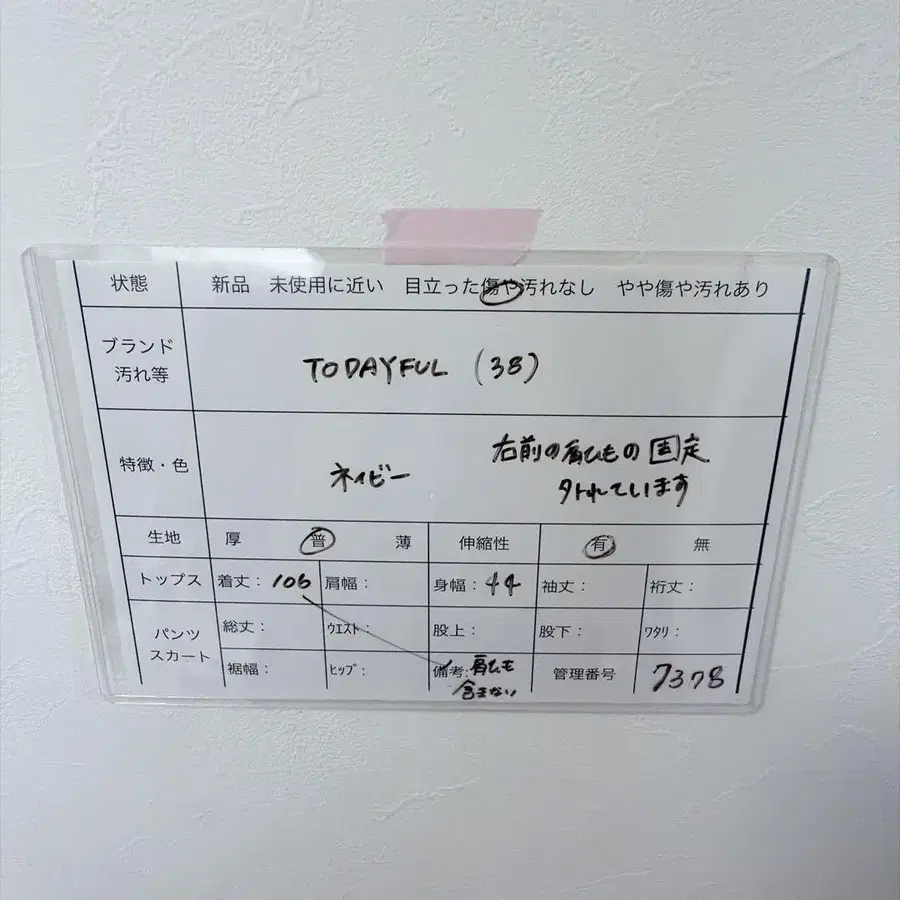 状態 新品 未使用に近い 目立った傷や汚れなし やや傷や汚れあり
ブランド
汚れ等
TODAYFUL (38)
特徴・色
ネイビー
右前の肩ひもの固定
外れています
生地 厚 普 薄 伸縮性 有 無
トップス 着丈: 106 肩幅: 身幅: 44 袖丈: 裄丈:
パンツ
スカート
総丈: ウエスト: 股上: 股下: ワタリ:
裾幅: ヒップ: 備考: 肩ひも
含まない
管理番号 7378